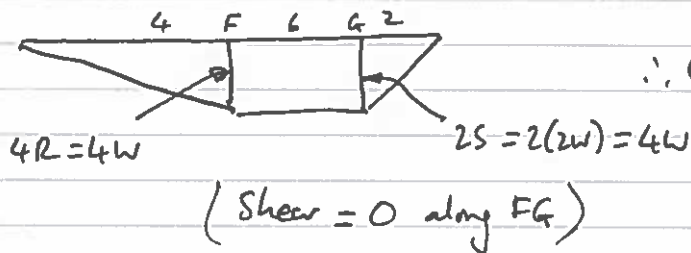 4 F 6 G 2
∴
4R = 4W
2S = 2(2W) = 4W
(Shear = 0 along FG)